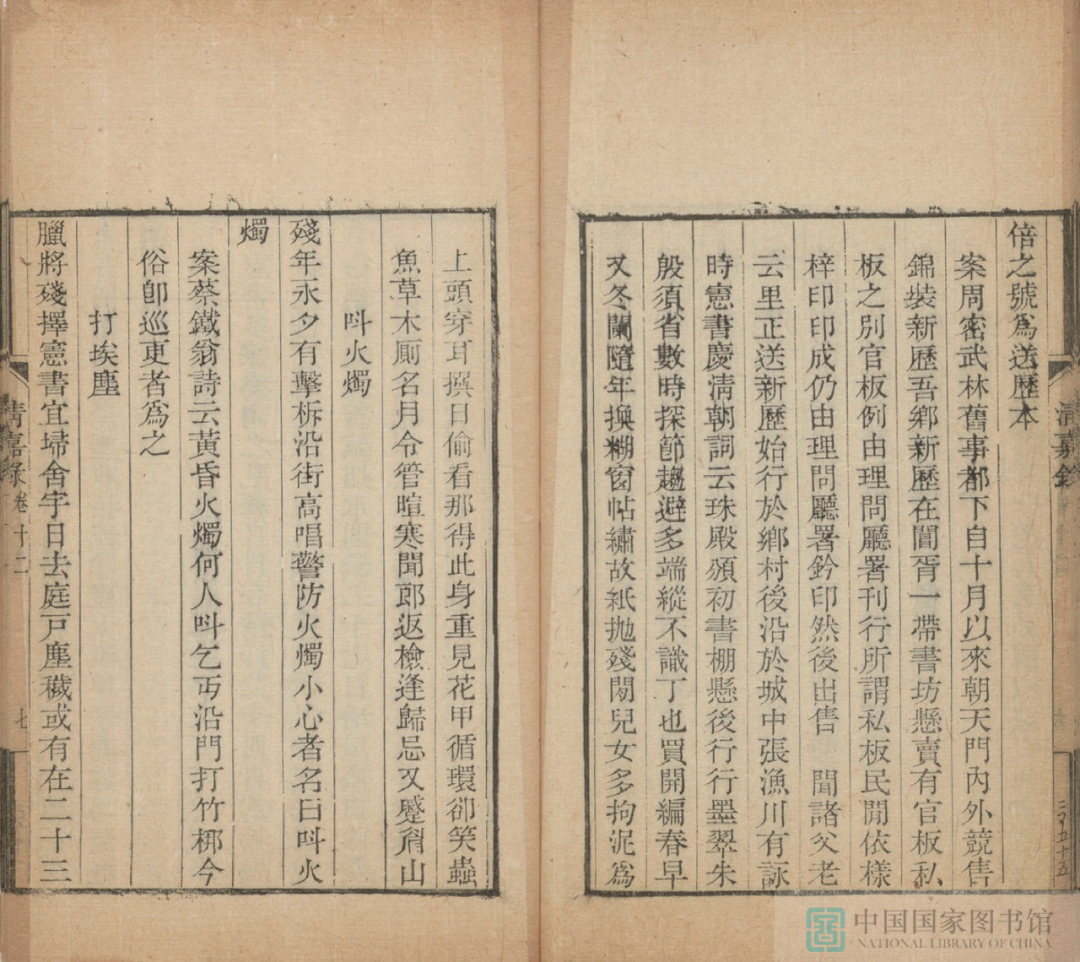 倍之號爲送歷本
案周密武林舊事都下自十月以來朝天門內外競售
錦裝新歷吾鄉新歷在閶胥一帶書坊懸賣有官板私
板之別官板例由理問廳署刊行所謂私板民間依樣
梓印印成仍由理問廳署鈐印然後出售 聞諸父老
云里正送新歷始行於鄉村後沿於城中張漁川有詠
時憲書慶淸朝詞云珠殿頒初書棚懸後行行墨翠朱
殷須省數時探節趨避多端縱不識丁也買開編春早
又冬闌隨年換糊窗帖繡故紙拋殘閒兒女多拘泥爲
淸嘉錄
三百五十五
上頭穿耳撰日偷看那得此身重見花甲循環卻笑蟲
魚草木厠名月令管暄寒聞郎返檢逢歸忌又蹙眉山
呌火燭
殘年永夕有擊柝沿街高唱警防火燭小心者名曰呌火
燭
案蔡鐵翁詩云黃昏火燭何人呌乞丐沿門打竹梆今
俗卽巡更者爲之
打埃塵
臘將殘擇憲書宜埽舍宇日去庭戶塵穢或有在二十三
淸嘉錄卷十二
七
中国国家图书馆
NATIONAL LIBRARY OF CHINA